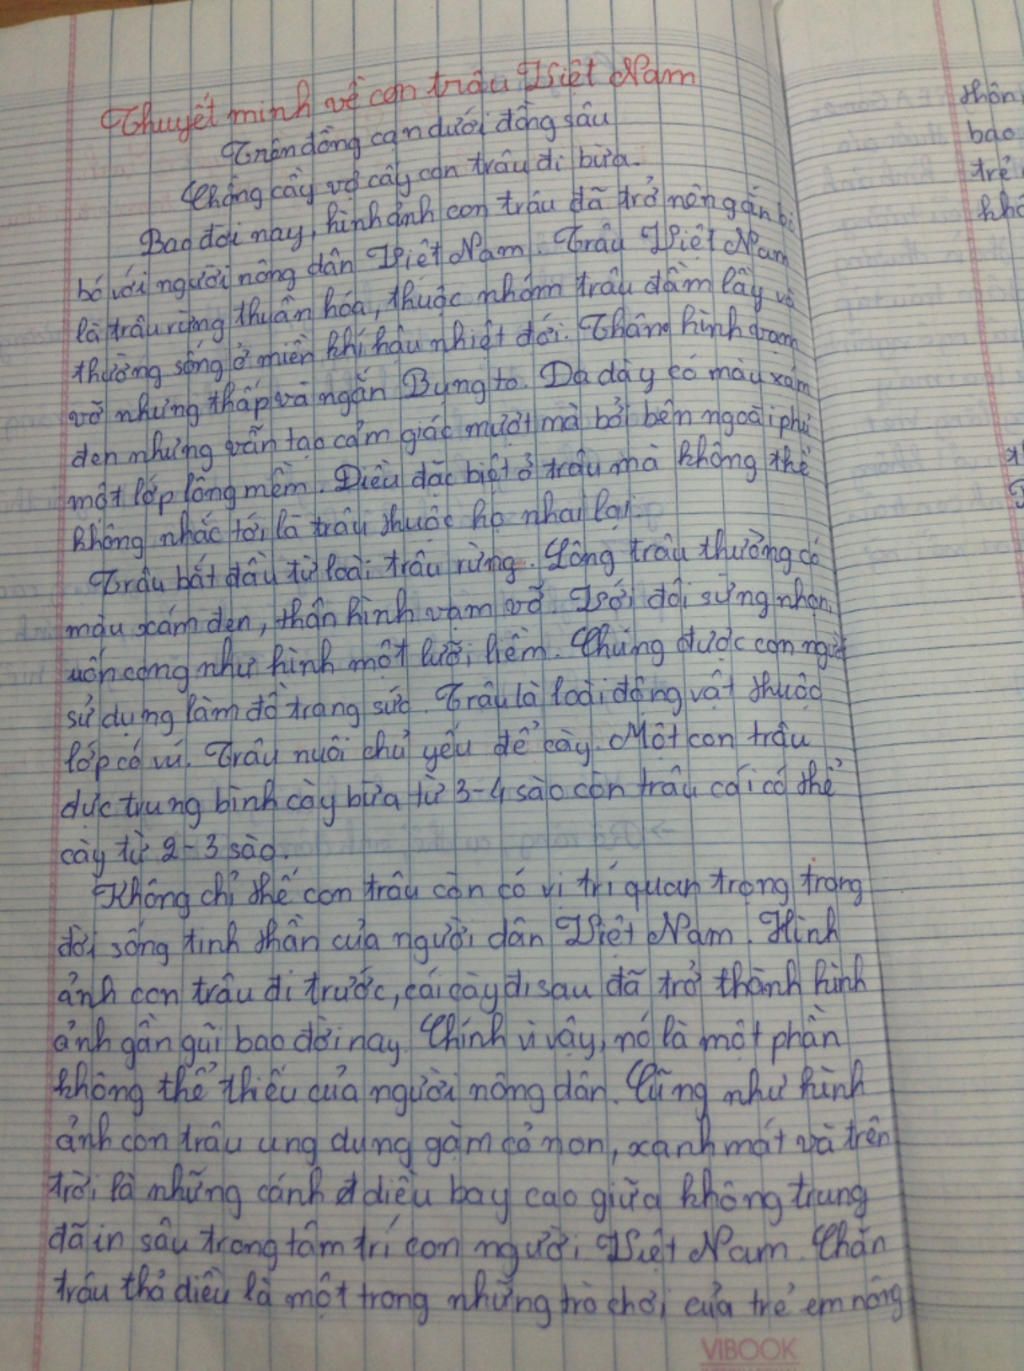 Thuyết minh về con trâu Việt Nam
Trên đồng cạn dưới đồng sâu
Chồng cầy vợ cấy con trâu đi bừa.
Bao đời nay, hình ảnh con trâu đã trở nên gắn bi
bó với người nông dân Việt Nam. Trâu Việt Nam
là trâu rừng thuần hóa, thuộc nhóm trâu đầm lầy và
thường sống ở miền khí hậu nhiệt đới. Thân hình vạm
vỡ nhưng thấp và ngắn Bụng to. Da dày có màu xám
đen nhưng vẫn tạo cảm giác mượt mà bởi bên ngoài phủ
một lớp lông mềm. Điều đặc biệt ở trâu mà không thể
không nhắc tới là trâu thuộc họ nhai lại.
Trâu bắt đầu từ loài trâu rừng. Lông trâu thường có
màu xám đen, thân hình vạm vỡ. Với đôi sừng nhọn
uốn cong như hình một lưỡi liềm. Chúng được con người
sử dụng làm đồ trang sức. Trâu là loài động vật thuộc
lớp có vú. Trâu nuôi chủ yếu để cày. Một con trâu
đực trung bình cày bừa từ 3-4 sào còn trâu cái có thể
cày từ 2-3 sào.
Không chỉ thế con trâu còn có vị trí quan trọng trong
đời sống tinh thần của người dân Việt Nam. Hình
ảnh con trâu đi trước, cái cày đi sau đã trở thành hình
ảnh gần gũi bao đời nay. Chính vì vậy, nó là một phần
không thể thiếu của người nông dân. Cũng như hình
ảnh con trâu ung dung gặm cỏ non, xanh mát và trên
trời là những cánh diều bay cao giữa không trung
đã in sâu trong tâm trí con người Việt Nam. Chăn
trâu thả diều là một trong những trò chơi của trẻ em nông
VIBOOK
bao
trẻ